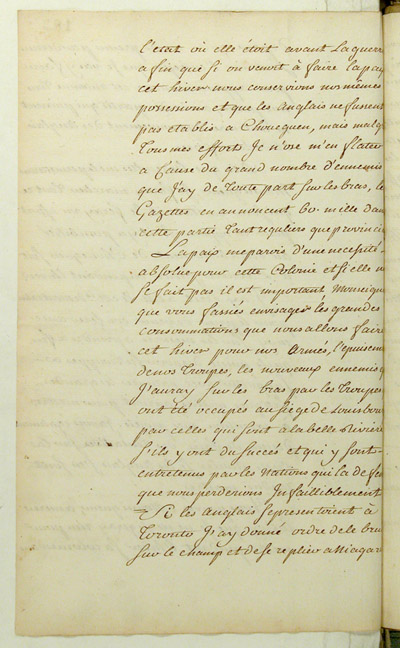 l'etat où elle étoit avant La guerre
afin que si on venoit à faire la paix
cet hiver nous conservions nos mêmes
possessions et que les anglais ne fussent
pas etablis a Choueguen, mais malgré
Tous mes efforts Je n'ose m'en flater
a Cause du grand nombre d'ennemis
que J'ay de Toute part sur les bras, les
Gazettes en annoncent 60. mille dans
cette partie Tant reguliers que provinciaux
La paix me parois d'une necessité
absolue pour cette Colonie et si elle ne
se fait pas il est important Monseigneur
que vous fassiés envisager les grandes
consommations que nous allons faire
cet hiver pour nos Armés, l'epuisement
de nos Troupes, les nouveaux ennemis que
J'auray sur les bras par les Troupes
ont été occupés au siege de Louisbourg
par celles qui sont a la belle Riviere
s'ils y ont du succés et qui y sont
entretenus par les Nations qui la de
que nous perderions Infailliblement
Si les Anglais se presentoient à
Toronto J'ay donné ordre de le bruler
sur le champ et de se replier a Niagara